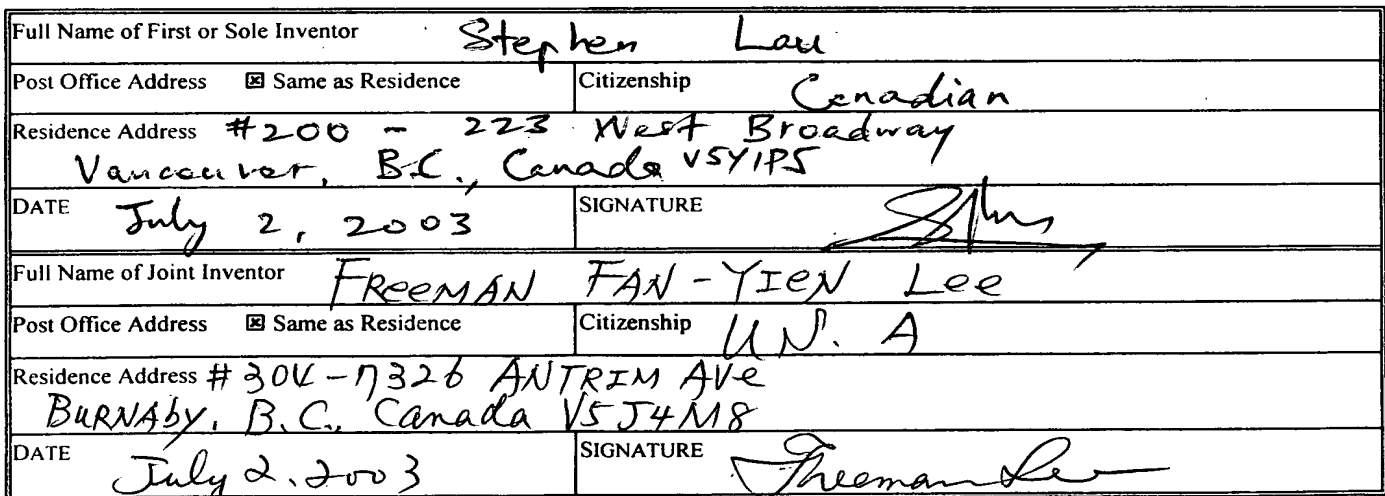 Full Name of First or Sole Inventor Stephen Lau
Post Office Address ☒ Same as Residence Citizenship Canadian
Residence Address #200 - 223 West Broadway
Vancouver, B.C., Canada V5Y1P5
DATE July 2, 2003 SIGNATURE
Full Name of Joint Inventor FReeMAN FAN-YIeN Lee
Post Office Address ☒ Same as Residence Citizenship
Residence Address #304-7326 ANTRIM AVe
BURNAby, B.C., Canada V5J4M8
DATE July 2, 2003 SIGNATURE Freeman Lee